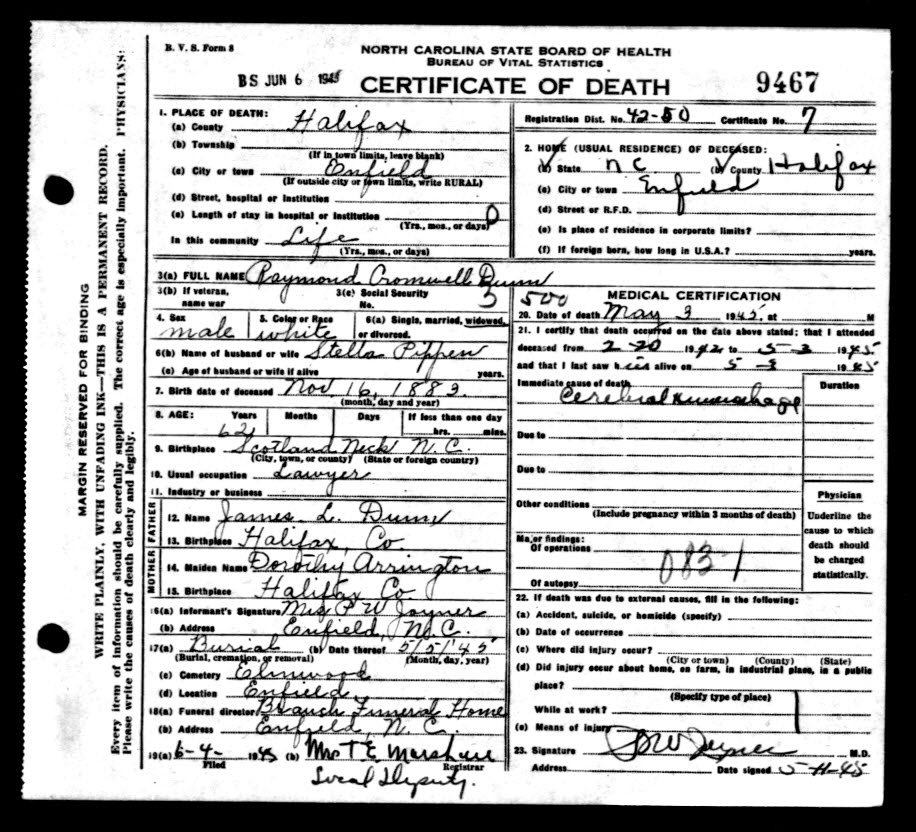 B. V. S. Form 8
NORTH CAROLINA STATE BOARD OF HEALTH
BUREAU OF VITAL STATISTICS
BS JUN 6 1945
CERTIFICATE OF DEATH
9467
MARGIN RESERVED FOR BINDING
WRITE PLAINLY, WITH UNFADING INK—THIS IS A PERMANENT RECORD.
Every item of information should be carefully supplied. The correct age is especially important. PHYSICIANS:
Please write the causes of death clearly and legibly.
1. PLACE OF DEATH:
(a) County Halifax
(b) Township
(If in town limits, leave blank)
(c) City or town Enfield
(If outside city or town limits, write RURAL)
(d) Street, hospital or institution
(e) Length of stay in hospital or institution 0
(Yrs., mos., or days)
In this community Life
(Yrs., mos., or days)
Registration Dist. No. 42-50 Certificate No. 7
2. HOME (USUAL RESIDENCE) OF DECEASED:
(a) State N C (b) County Halifax
(c) City or town Enfield
(d) Street or R.F.D.
(e) Is place of residence in corporate limits?
(f) If foreign born, how long in U.S.A.? years.
3(a) FULL NAME Raymond Cromwell Dunn
3(b) If veteran, name war
3(c) Social Security No.
4. Sex male
5. Color or Race white
6(a) Single, married, widowed, or divorced.
6(b) Name of husband or wife Stella Pippen
(c) Age of husband or wife if alive years.
7. Birth date of deceased Nov. 16, 1883
(month, day and year)
8. AGE: Years Months Days If less than one day
hrs. mins.
9. Birthplace Scotland Neck N.C.
(City, town, or county) (State or foreign country)
10. Usual occupation Lawyer
11. Industry or business
FATHER
12. Name James L. Dunn
13. Birthplace Halifax, Co.
MOTHER
14. Maiden Name Dorothy Arrington
15. Birthplace Halifax Co
16(a) Informant's Signature Mrs P W Joyner
(b) Address Enfield, N.C.
17(a) Burial (b) Date thereof 5/5/'45
(Burial, cremation, or removal) (Month, day, year)
(c) Cemetery Elmwood
(d) Location Enfield
18(a) Funeral director Branch Funeral Home
(b) Address Enfield, N.C.
19(a) 6-4- 1945 (b) Mrs T E
Filed Registrar
Local Deputy.
500 MEDICAL CERTIFICATION
20. Date of death May 3 1945, at M
21. I certify that death occurred on the date above stated; that I attended
deceased from 2-20 1942 to 5-3 1945
and that I last saw alive on 5 3 1945
Immediate cause of death Duration
Cerebral
Due to
Due to
Other conditions
(Include pregnancy within 3 months of death)
Major findings:
Of operations
083-1
Of autopsy
Physician
Underline the
cause to which
death should
be charged
statistically.
22. If death was due to external causes, fill in the following:
(a) Accident, suicide, or homicide (specify)
(b) Date of occurrence
(c) Where did injury occur?
(City or town) (County) (State)
(d) Did injury occur about home, on farm, in industrial place, in a public
place?
(Specify type of place)
While at work?
(e) Means of injury
23. Signature P W Joyner M.D.
Address Date signed 5-11-45